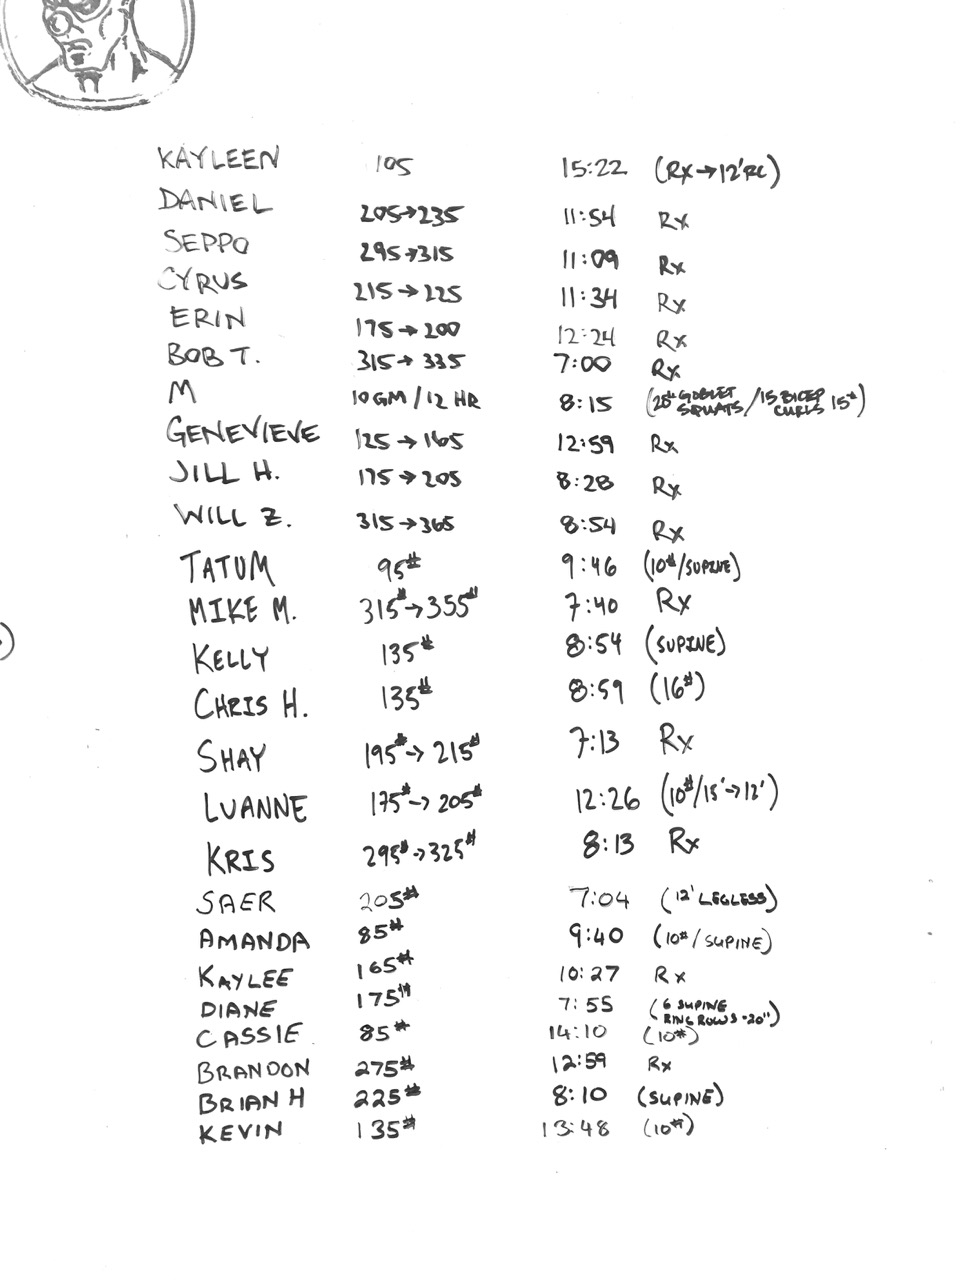 KAYLEEN 105 15:22 (RX→12'RC)
DANIEL 205→235 11:54 Rx
SEPPO 295→315 11:09 Rx
CYRUS 215→225 11:34 Rx
ERIN 175→200 12:24 Rx
BOB T. 315→335 7:00 Rx
M 10 GM / 12 HR 8:15 (25# GOBLET SQUATS / 15 BICEP CURLS 15#)
GENEVIEVE 125→165 12:59 Rx
JILL H. 175→205 8:28 Rx
WILL Z. 315→365 8:54 Rx
TATUM 95# 9:46 (10#/SUPINE)
MIKE M. 315#→355# 7:40 Rx
KELLY 135# 8:54 (SUPINE)
CHRIS H. 135# 8:59 (16#)
SHAY 195#→215# 7:13 Rx
LUANNE 175#→205# 12:26 (10#/15'→12')
KRIS 295#→325# 8:13 Rx
SAER 205# 7:04 (12' LEGLESS)
AMANDA 85# 9:40 (10#/SUPINE)
KAYLEE 165# 10:27 Rx
DIANE 175# 7:55 (6 SUPINE RING ROWS-20")
CASSIE 85# 14:10 (10#)
BRANDON 275# 12:59 Rx
BRIAN H 225# 8:10 (SUPINE)
KEVIN 135# 13:48 (10#)